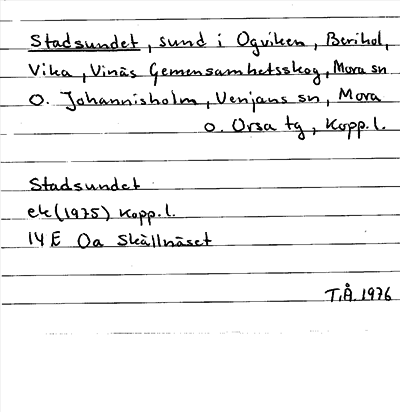 Stadsundet, sund i Ogviken, Berihol,
Vika, Vinäs Gemensamhetsskog, Mora sn
o. Johannisholm, Venjans sn, Mora
o. Orsa tg, Kopp. l.
Stadsundet
ek (1975) Kopp. l.
14 E 0a Skällnäset
T.Å. 1976